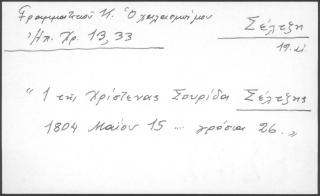 Γραμματικού Η. Ο χαλασμός μου
Ηπ. Χρ. 13, 33
Σέλτζη
19. κ
" 1 της Χρίστενας Σουρίδα Σέλτζης
1804 Μαΐου 15 ... γρόσια 26. "